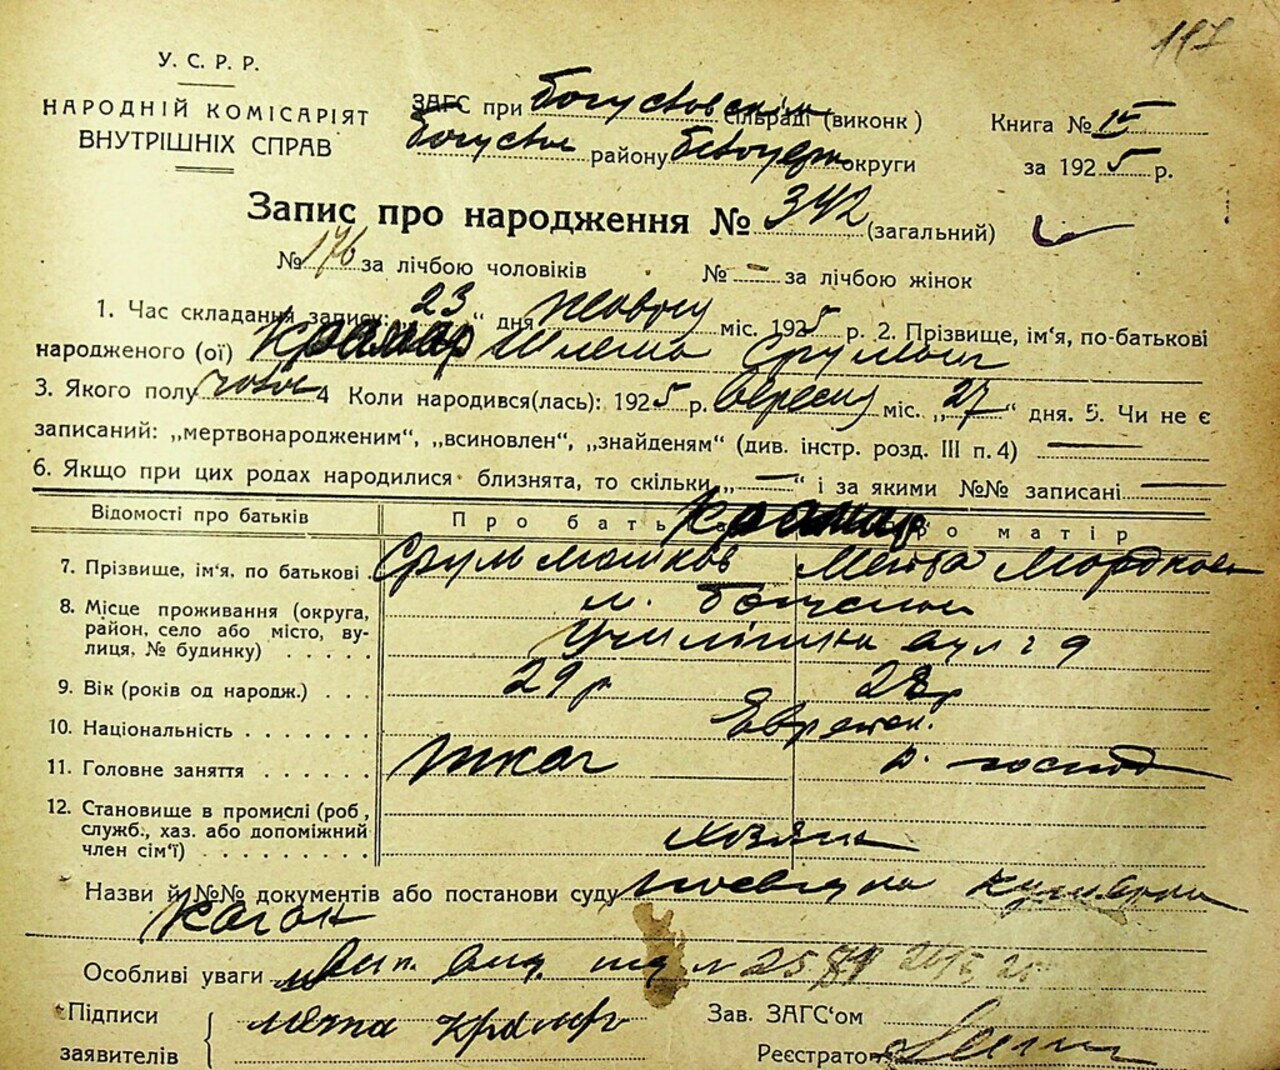 117
У. С. Р. Р.
НАРОДНІЙ КОМІСАРІЯТ
ВНУТРІШНІХ СПРАВ
ЗАГС при Богуславскім сільраді (виконк)
Богуслав району Білоцерк округи
Книга № III
за 1925 р.
Запис про народження № 342 (загальний)
№ 176 за лічбою чоловіків № — за лічбою жінок
1. Час складання запису: 23 " дня Жовту міс. 1925 р. 2. Прізвище, ім'я, по-батькові
народженого (ої) Крамар Шлема Срулиов
3. Якого полу чолов 4 Коли народився(лась): 1925 р. Вересня міс. „27" дня. 5. Чи не є
записаний: „мертвонародженим", „всиновлен", „знайденям" (див. інстр. розд. III п. 4) —
6. Якщо при цих родах народилися близнята, то скільки „—" і за якими №№ записані —
Відомості про батьків Про бать Крамар ро матір
7. Прізвище, ім'я, по батькові Сруль Мошков Мейта Мордков
8. Місце проживання (округа, м. Богуслав
район, село або місто, ву-
лиця, № будинку) . . . . . вул 9
9. Вік (років од народж.) . . . 29 р 28 р
10. Національність . . . . . . . Еврейск.
11. Головне заняття . . . . . . ткач д. господ
12. Становище в промислі (роб,
служб., хаз. або допоміжний хозяин
член сім'ї) . . . . . . . .
Назви й №№ документів або постанови суду
Каган
Особливі уваги Вип. вид. № 2589
Підписи Мейта Крамар Зав. ЗАГС'ом
заявителів Реєстратор